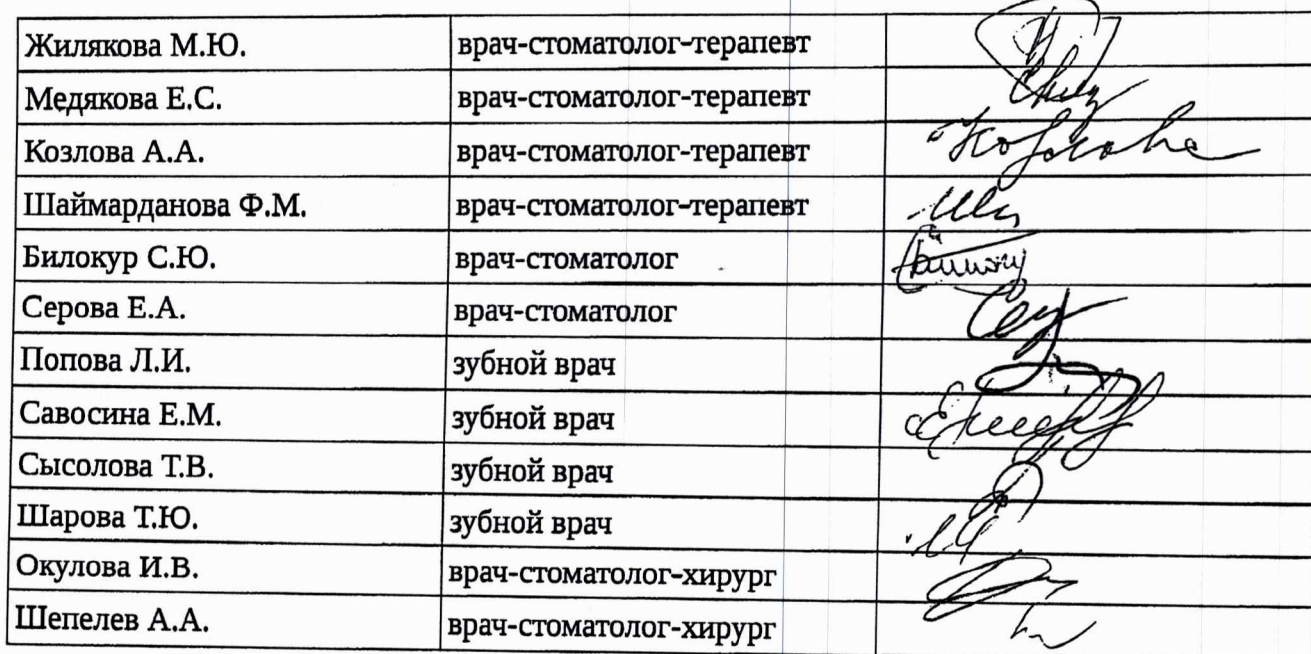 Жилякова М.Ю. врач-стоматолог-терапевт
Медякова Е.С. врач-стоматолог-терапевт
Козлова А.А. врач-стоматолог-терапевт Козлова
Шаймарданова Ф.М. врач-стоматолог-терапевт
Билокур С.Ю. врач-стоматолог
Серова Е.А. врач-стоматолог
Попова Л.И. зубной врач
Савосина Е.М. зубной врач
Сысолова Т.В. зубной врач
Шарова Т.Ю. зубной врач
Окулова И.В. врач-стоматолог-хирург
Шепелев А.А. врач-стоматолог-хирург